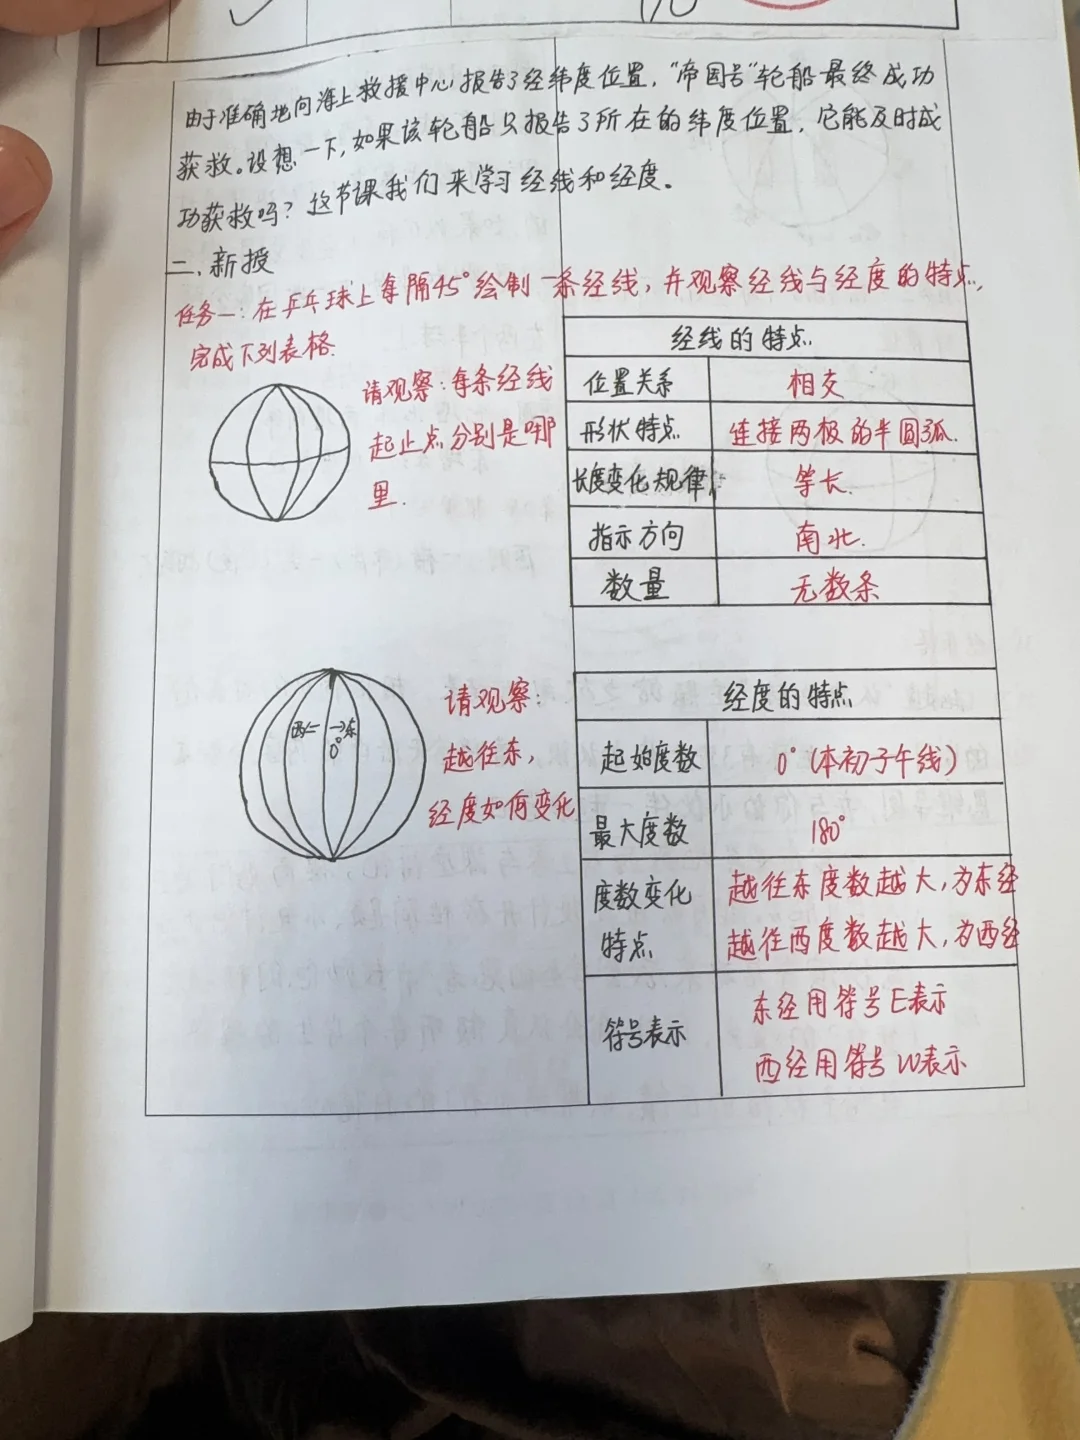 由于准确地向海上救援中心报告了经纬度位置，“帝国号”轮船最终成功
获救。设想一下，如果该轮船只报告了所在的纬度位置，它能及时成
功获救吗？这节课我们来学习经线和经度。
二、新授
任务一：在乒乓球上每隔45°绘制一条经线，并观察经线与经度的特点，
完成下列表格.
请观察：每条经线
起止点分别是哪
里.
经线的特点
位置关系 相交
形状特点 连接两极的半圆弧.
长度变化规律 等长.
指示方向 南北.
数量 无数条
西← →东
0°
请观察：
越往东，
经度如何变化
经度的特点
起始度数 0°(本初子午线)
最大度数 180°
度数变化 越往东度数越大，为东经
特点 越往西度数越大，为西经
符号表示 东经用符号E表示
西经用符号W表示